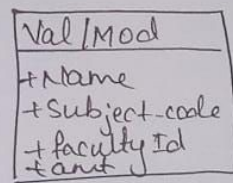 Val/Mod
+Name
+Subject-code
+faculty Id